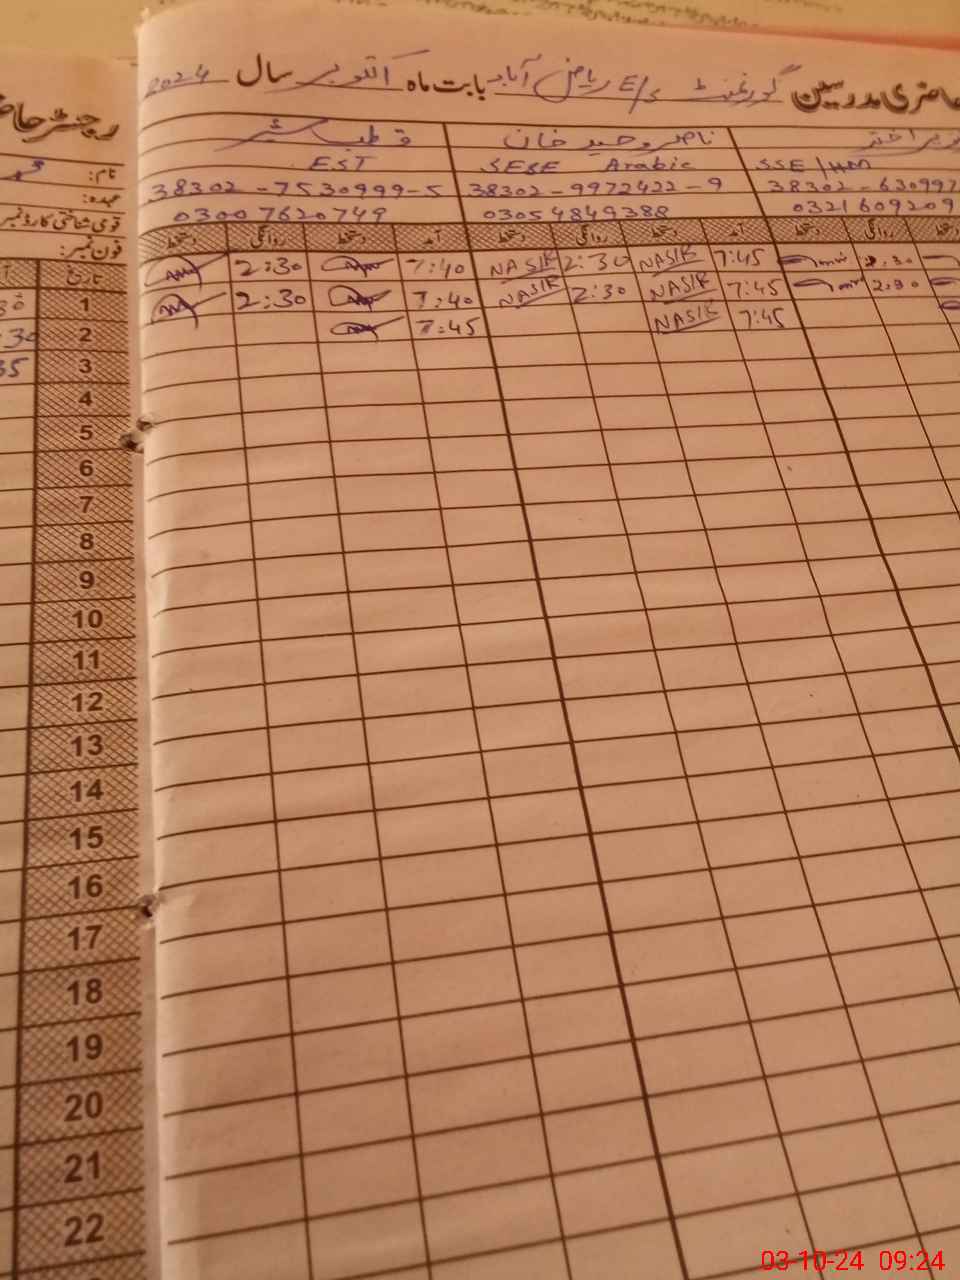 حاضری مدرسین گورنمنٹ E/S ریاض آباد بابت ماہ اکتوبر سال 2024
رجسٹر حا
ناصر وحید خان
SESE Arabic
38302-9972422-9
03054849388
قطب شیر
EST
38302-7530999-5
03007620749
SSE/HM
38302-630997
0321609209
نام:
عہدہ:
قومی شناختی کارڈ نمبر
فون نمبر:
دستخط روانگی دستخط آمد دستخط روانگی دستخط آمد دستخط روانگی
تاریخ
2:30 7:40 NASIR 2:30 NASIR 7:45 2:30
1 2:30 7:40 NASIR 2:30 NASIR 7:45 2:30
2 7:45 NASIR 7:45
3
4
5
6
7
8
9
10
11
12
13
14
15
16
17
18
19
20
21
22
03-10-24 09:24